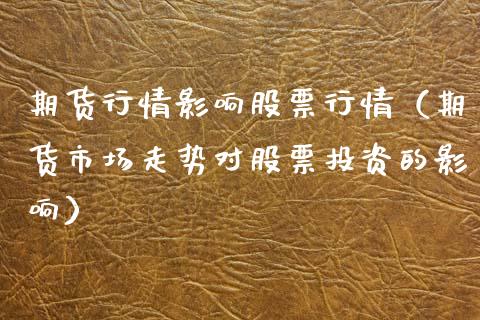 期货行情影响股票行情（期
货市场走势对股票投资的影
响）